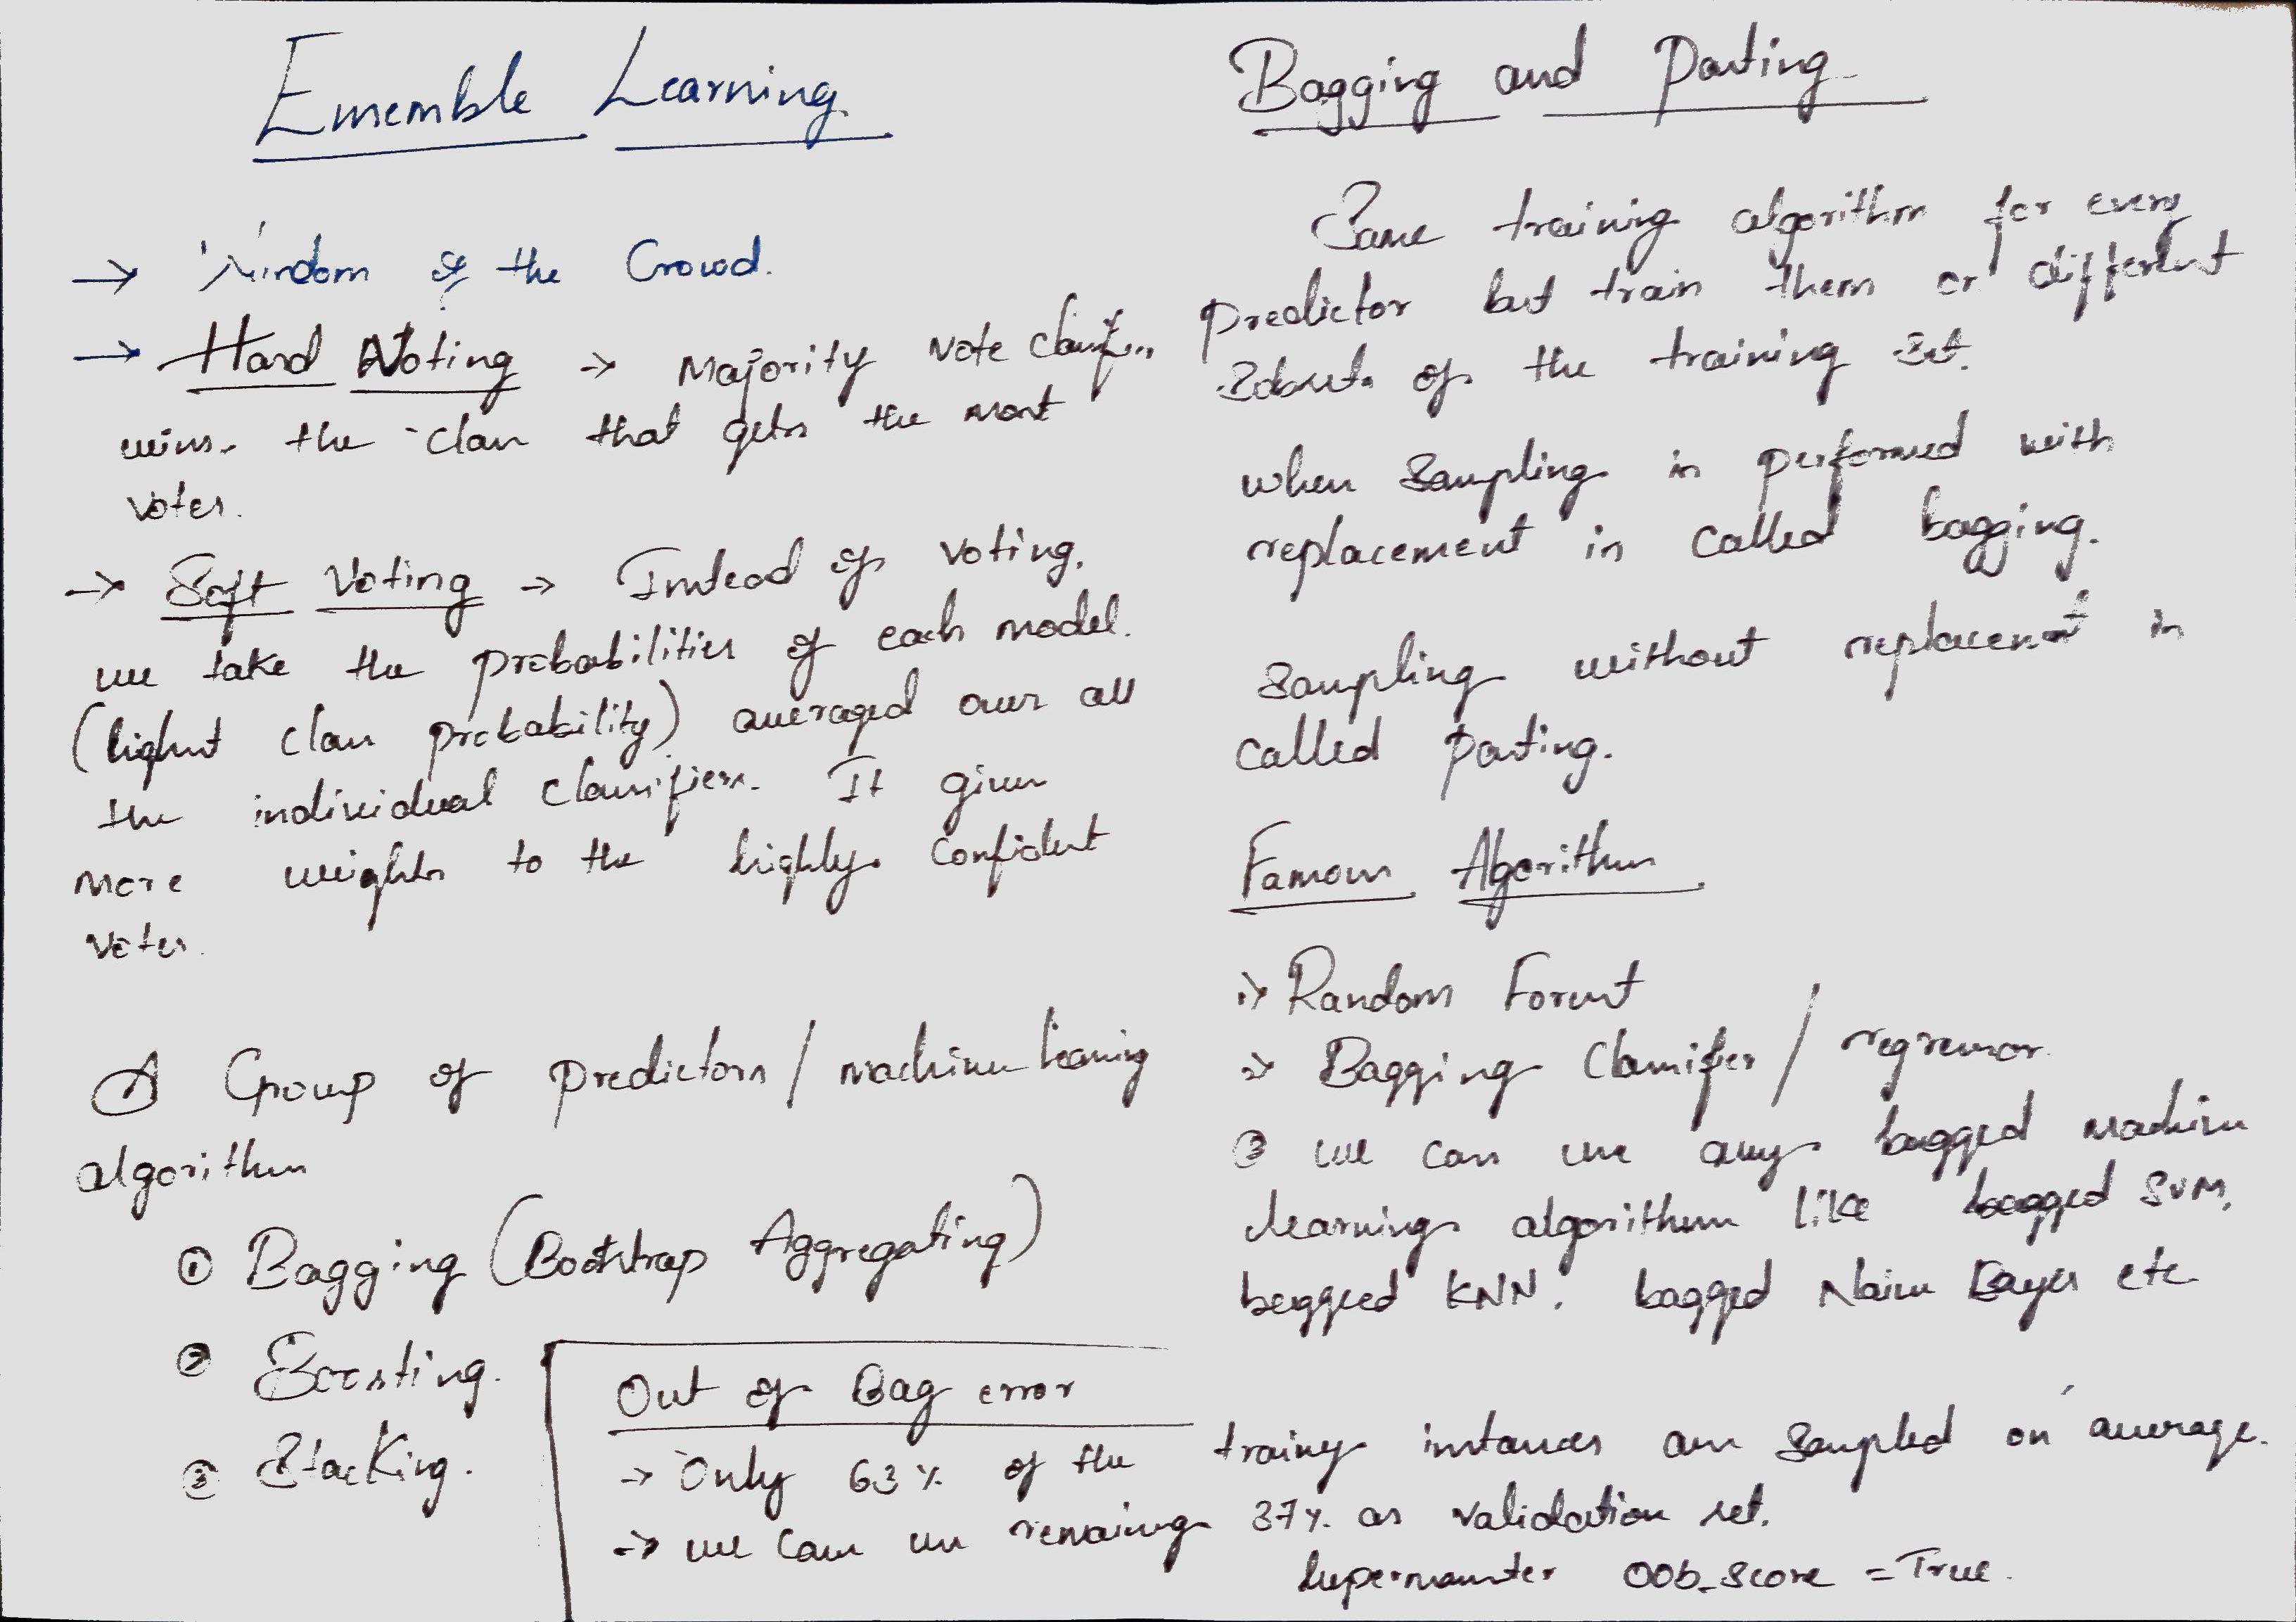 Ensemble Learning
→ Wisdom of the Crowd.
→ Hard Voting → Majority vote classifier
wins. the class that gets the most
votes.
→ Soft Voting → Instead of voting,
we take the probabilities of each model.
(highest class probability) averaged over all
the individual classifiers. It gives
more weights to the highly confident
votes.
A Group of predictors / machine learning
algorithm
① Bagging (Bootstrap Aggregating)
② Boosting.
③ Stacking.
Bagging and Pasting
Same training algorithm for every
predictor but train them on different
subsets of the training set.
when sampling is performed with
replacement is called bagging.
Sampling without replacement is
called pasting.
Famous Algorithm
Random Forest
Bagging Classifier / regressor.
③ we can use any bagged machine
learning algorithm like bagged SVM,
bagged KNN, bagged Naive Bayes etc
Out of Bag error
→ Only 63% of the training instances are sampled on average.
→ we can use remaining 37% as validation set.
OOb_Score = True.